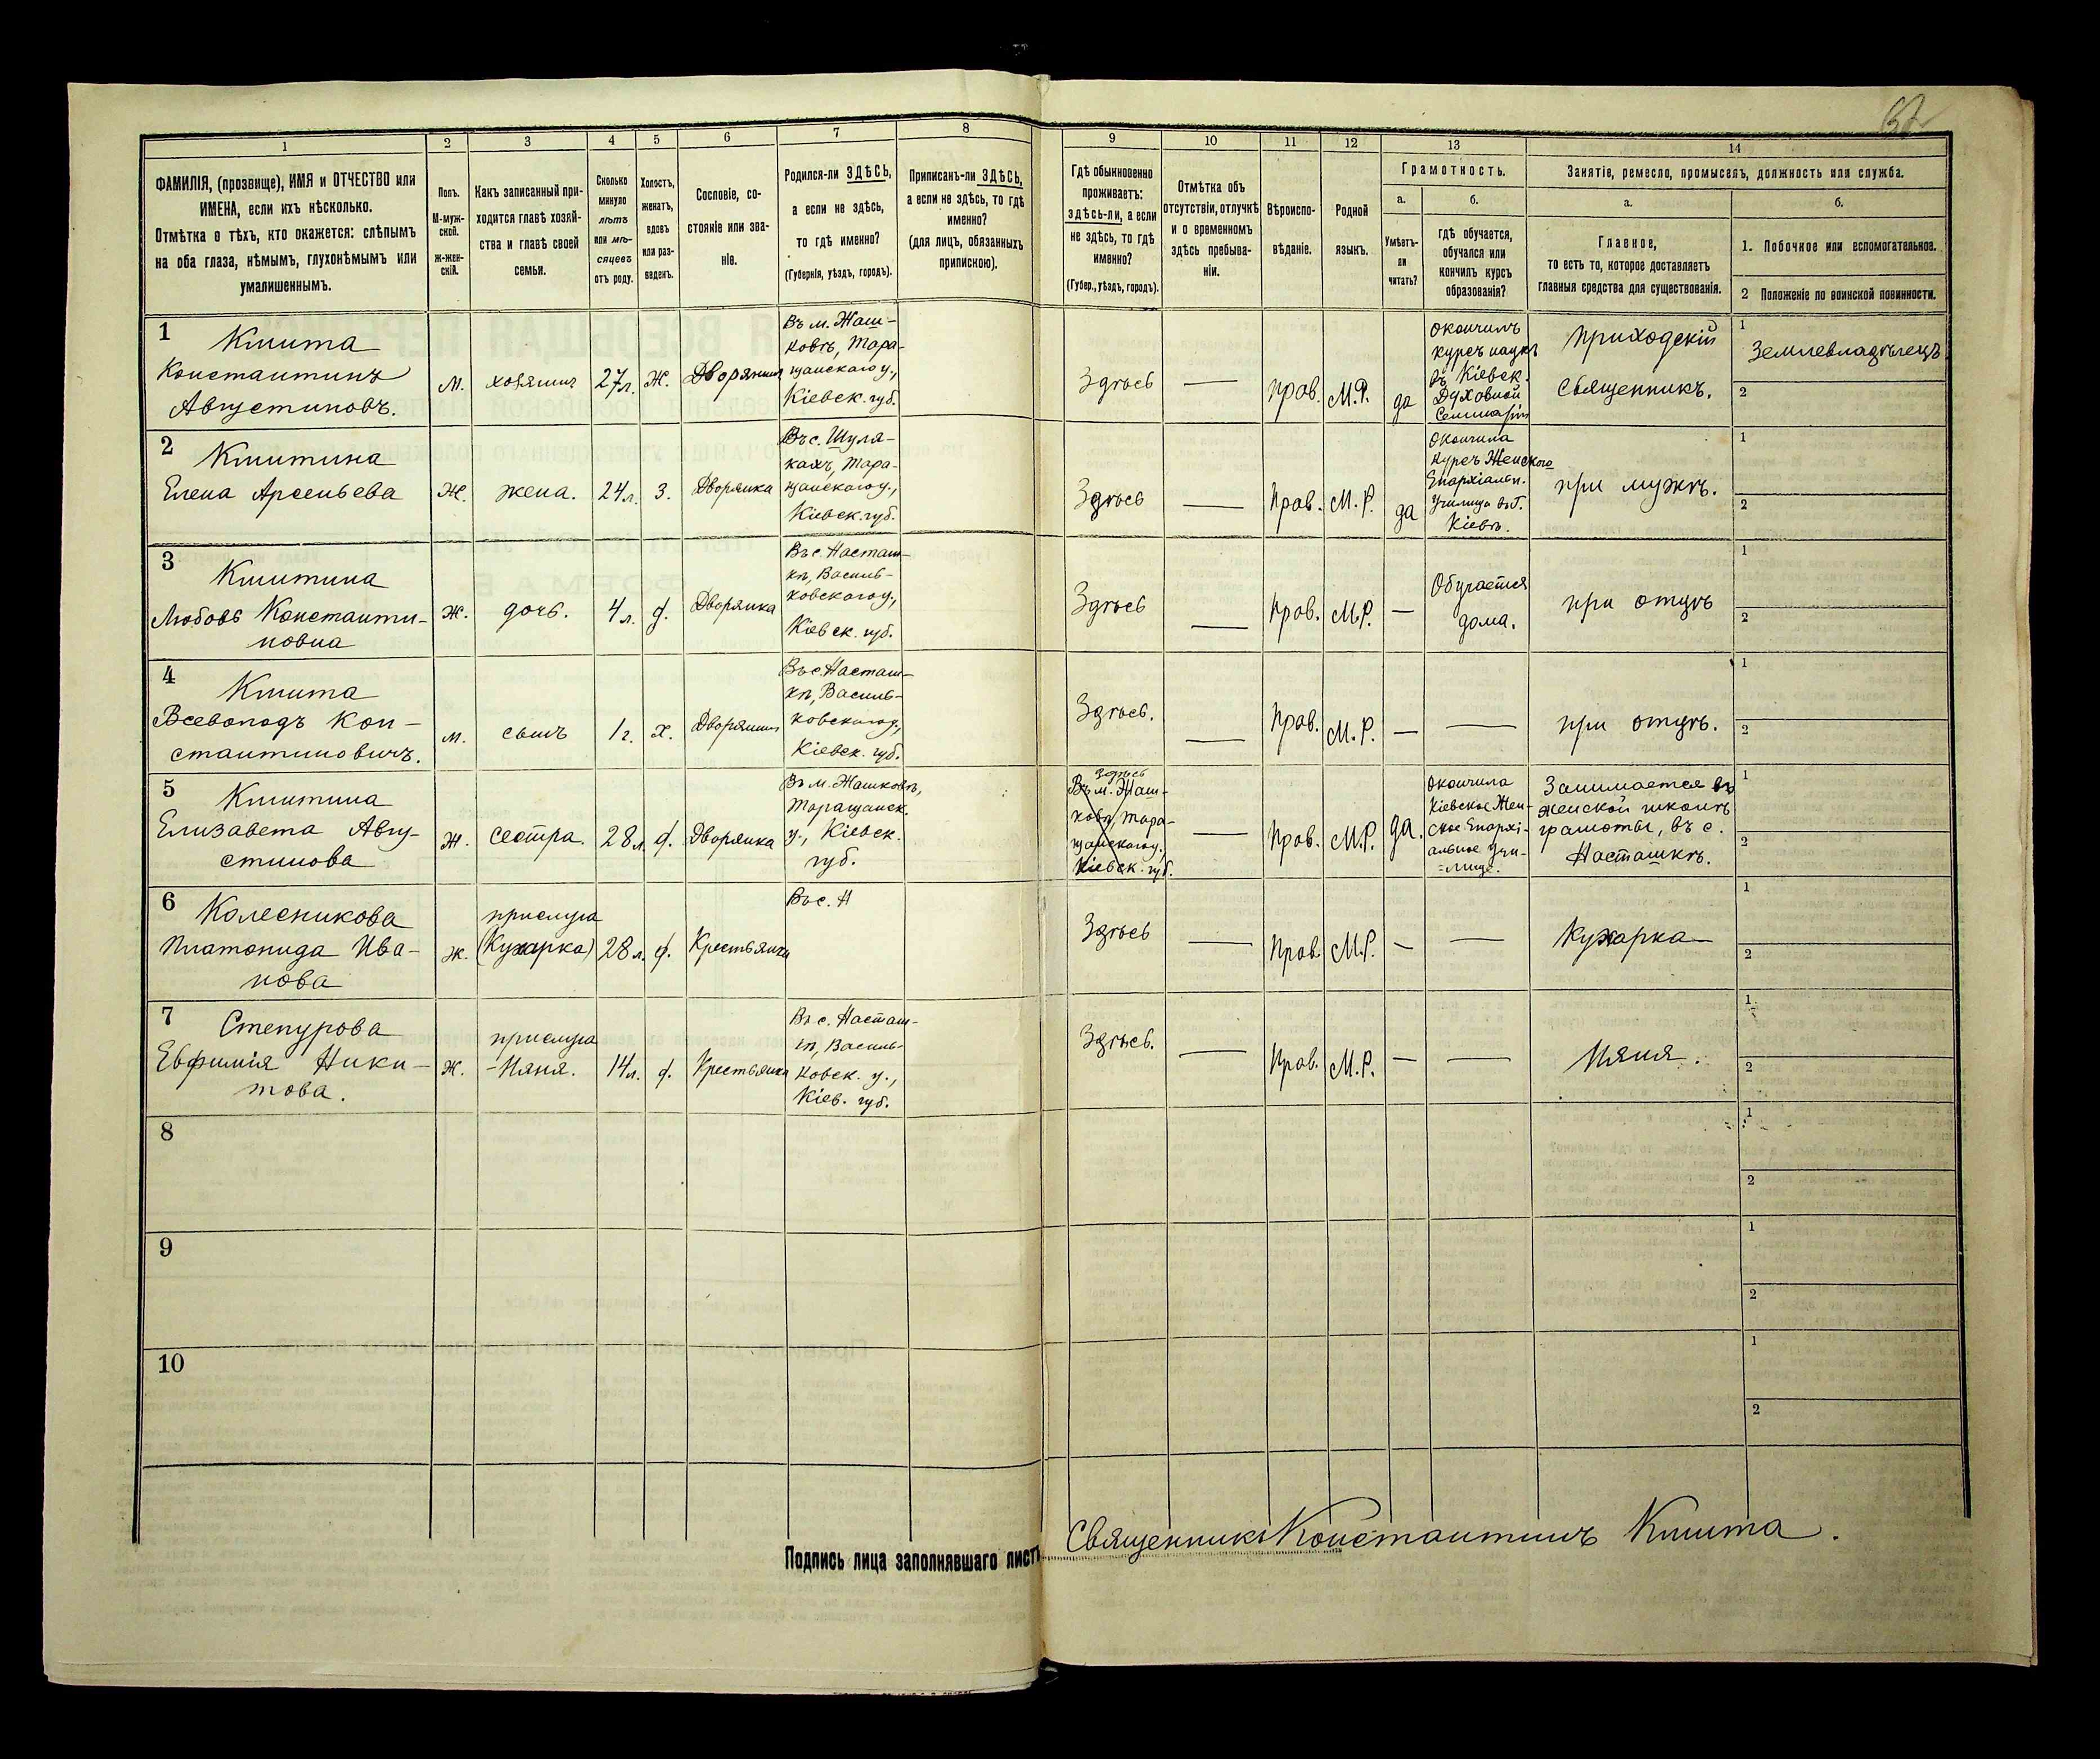 1
2
3
4
5
6
7
8
9
10
11
12
13
14
ФАМИЛІЯ, (прозвище), ИМЯ и ОТЧЕСТВО или
ИМЕНА, если ихъ нѣсколько.
Отмѣтка о тѣхъ, кто окажется: слѣпымъ
на оба глаза, нѣмымъ, глухонѣмымъ или
умалишеннымъ.
Полъ.
М-муж-
ской.
ж-жен-
скій.
Какъ записанный при-
ходится главѣ хозяй-
ства и главѣ своей
семьи.
Сколько
минуло
лѣтъ
или мѣ-
сяцевъ
отъ роду.
Холостъ,
женатъ,
вдовъ
или раз-
веденъ.
Сословіе, со-
стояніе или зва-
ніе.
Родился-ли ЗДѢСЬ,
а если не здѣсь,
то гдѣ именно?
(Губернія, уѣздъ, городъ).
Приписанъ-ли ЗДѢСЬ,
а если не здѣсь, то гдѣ
именно?
(для лицъ, обязанныхъ
припискою).
Гдѣ обыкновенно
проживаетъ:
здѣсь-ли, а если
не здѣсь, то гдѣ
именно?
(Губер., уѣздъ, городъ).
Отмѣтка объ
отсутствіи, отлучкѣ
и о временномъ
здѣсь пребыва-
ніи.
Вѣроиспо-
вѣданіе.
Родной
языкъ.
Грамотность.
а.
Умѣетъ-
ли
читать?
б.
гдѣ обучается,
обучался или
кончилъ курсъ
образованія?
Занятіе, ремесло, промыселъ, должность или служба.
а.
Главное,
то есть то, которое доставляетъ
главныя средства для существованія.
б.
1. Побочное или вспомогательное.
2 Положеніе по воинской повинности.
1
Кмита
Константинъ
Августиновъ.
м.
хозяинъ
27 л.
Ж.
Дворянинъ
Въ м. Жаш-
ковѣ, Тара-
щанскаго у.,
Кіевск. губ.
Здѣсь
—
Прав.
М.Р.
да
Окончилъ
курсъ наукъ
въ Кіевск.
Духовной
Семинаріи
Приходскій
священникъ.
1
Землевладѣлецъ.
2
2
Кмитина
Елена Арсеньева
Ж.
жена.
24 л.
З.
Дворянка
Въ с. Шуля-
кахъ, Тара-
щанскаго у.,
Кіевск. губ.
Здѣсь
—
Прав.
М.Р.
да
Окончила
курсъ Женскаго
Епархіальн.
Училища въ Г.
Кіевѣ.
при мужѣ.
1
2
3
Кмитина
Любовь Константи-
новна
Ж.
дочь.
4 л.
д.
Дворянка
Въ с. Насташ-
кѣ, Василь-
ковскаго у.,
Кіевск. губ.
Здѣсь
—
Прав.
М.Р.
—
Обучается
дома.
при отцѣ
1
2
4
Кмита
Всеволодъ Кон-
стантиновичъ.
м.
сынъ
1 г.
Х.
Дворянинъ
Въ с. Насташ-
кѣ, Василь-
ковскаго у.,
Кіевск. губ.
Здѣсь.
—
Прав.
М.Р.
—
—
при отцѣ.
1
2
5
Кмитина
Елизавета Авгу-
стинова
Ж.
сестра.
28 л.
д.
Дворянка
Въ м. Жашковѣ,
Таращанск.
у., Кіевск.
губ.
здѣсь
Въ м. Жаш-
ковѣ, Тара-
щанскаго у.,
Кіевск. губ.
—
Прав.
М.Р.
да.
Окончила
Кіевское Жен-
ское Епархі-
альное учи-
лище.
Занимается въ
женской школѣ
грамоты, въ с.
Насташкѣ.
1
2
6
Колесникова
Платонида Ива-
нова
ж.
прислуга
(Кухарка)
28 л.
д.
Крестьянка
Въ с. Н
Здѣсь
—
Прав.
М.Р.
—
—
Кухарка
1
2
7
Степурова
Евфимія Ники-
това.
Ж.
прислуга
-Няня.
14 л.
д.
Крестьянка
Въ с. Насташ-
кѣ, Василь-
ковск. у.,
Кіев. губ.
Здѣсь.
—
Прав.
М.Р.
—
—
Няня.
1
2
8
1
2
9
1
2
10
1
2
Подпись лица заполнявшаго листъ Священникъ Константинъ Кмита.